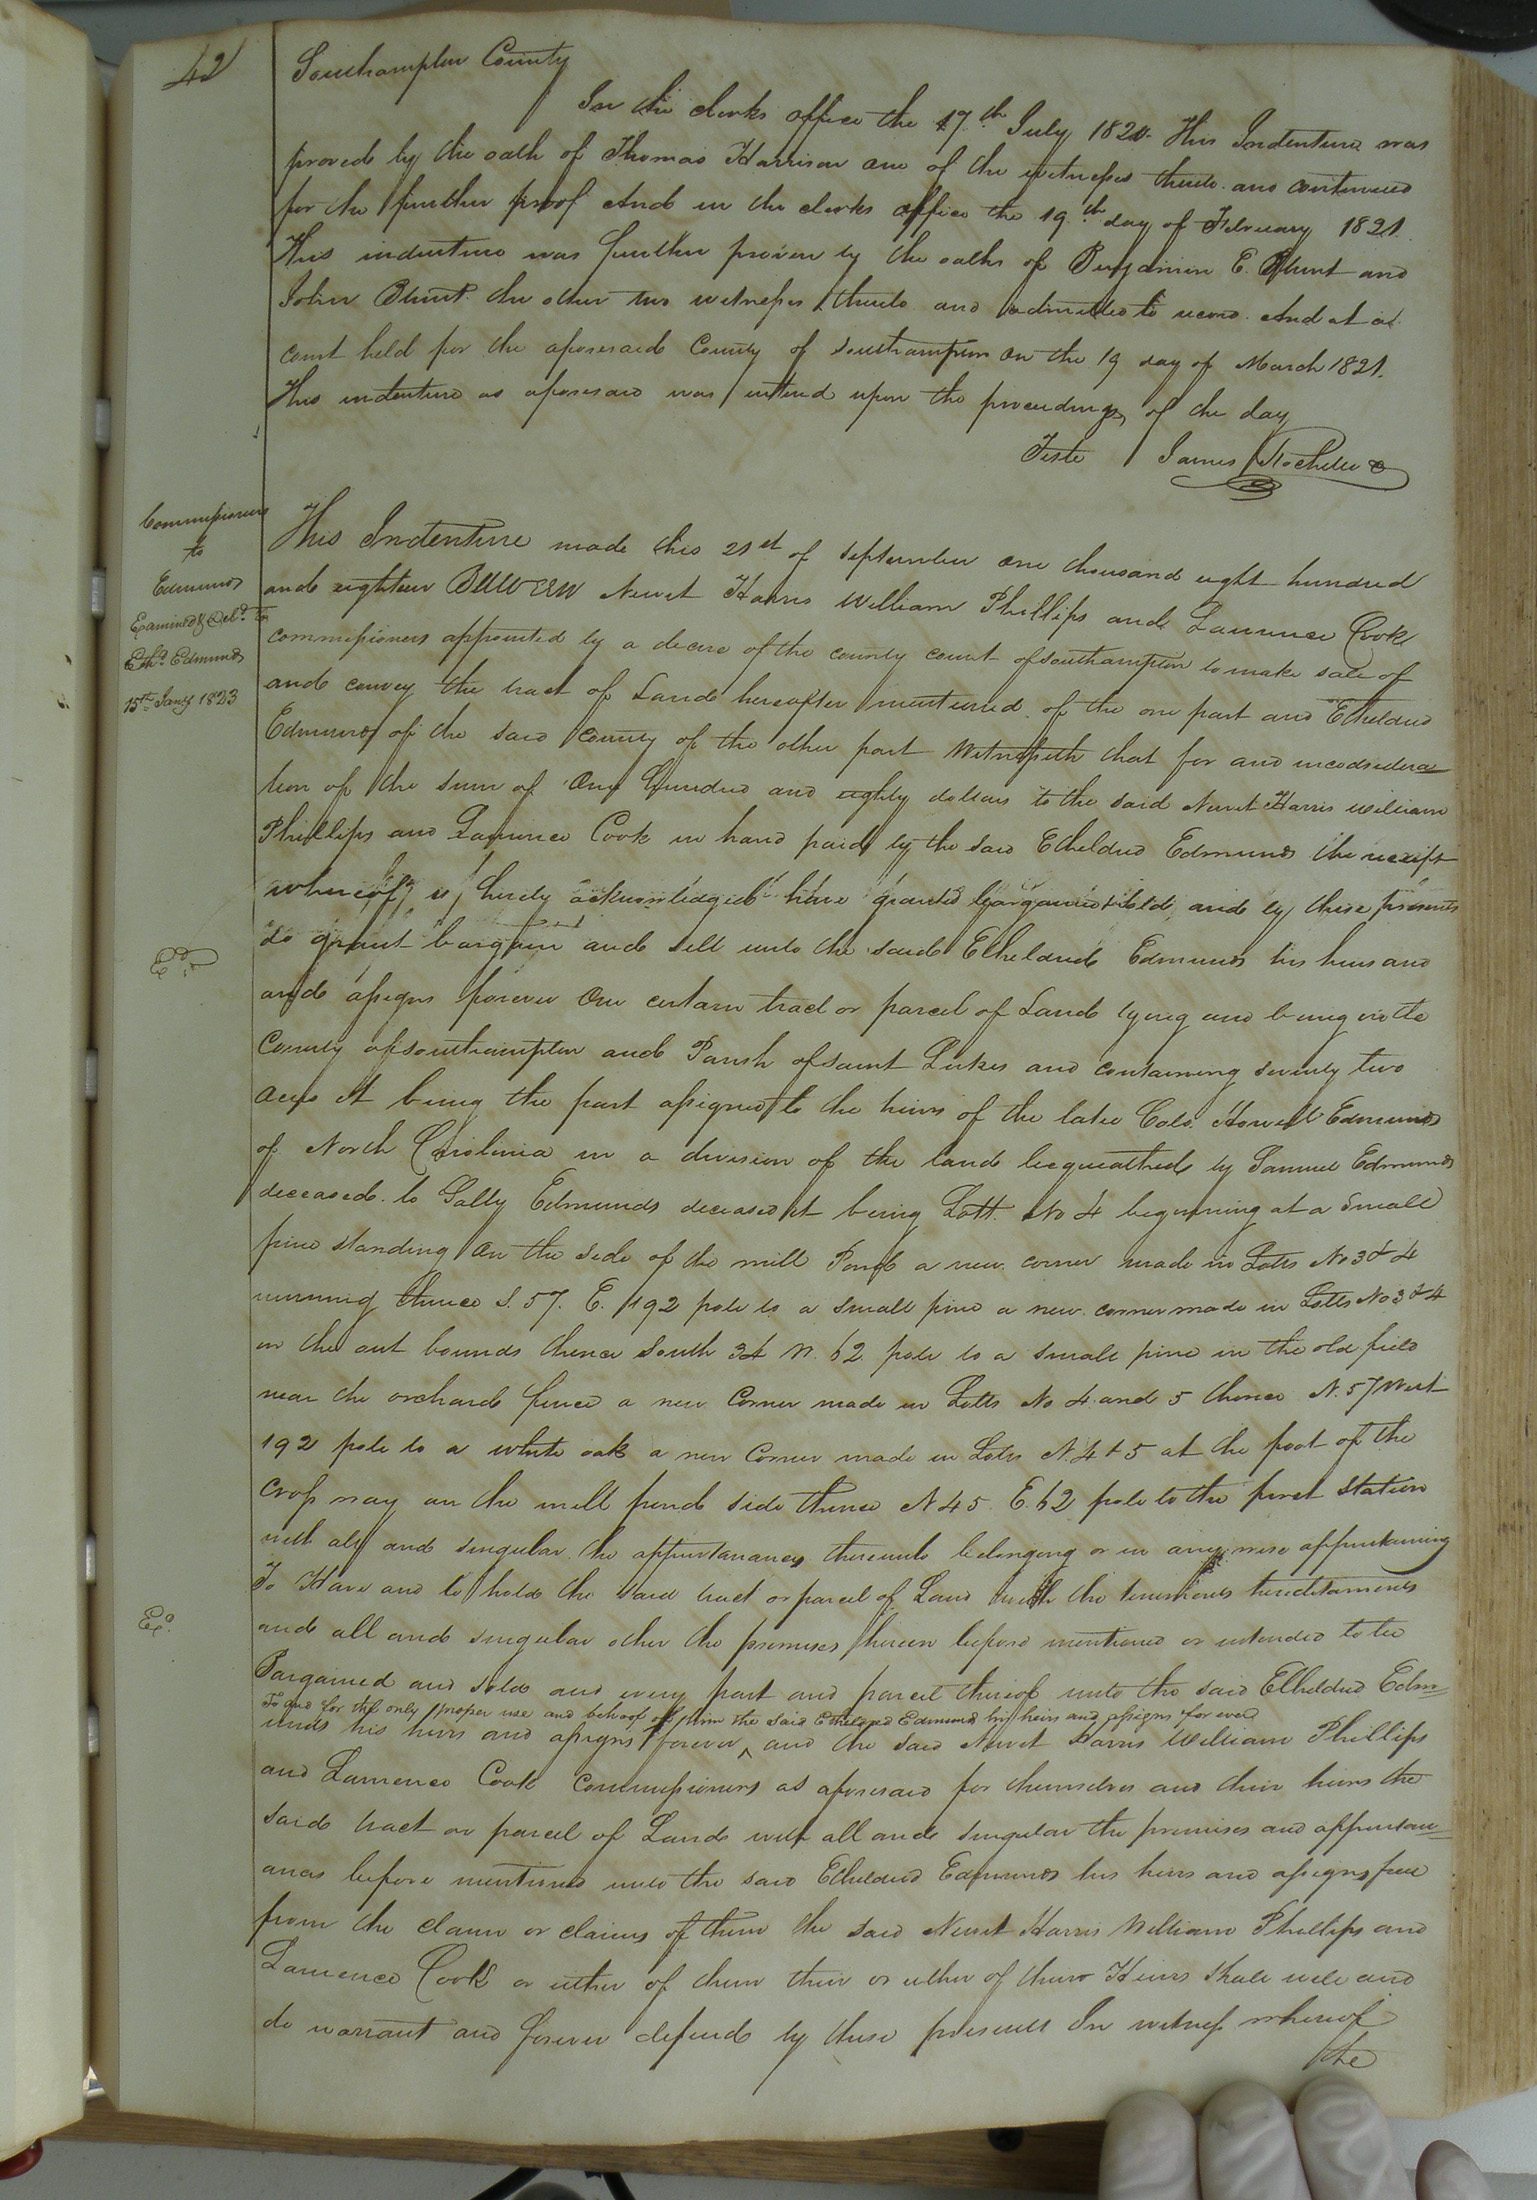 42
Southampton County
In the clerks office the 17th July 1820 This Indenture was
proved by the oath of Thomas Harrison one of the witnesses thereto and continued
for the further proof And in the clerks office the 19th day of February 1821
This indenture was further proven by the oaths of Benjamin E. Blunt and
John Blunt the other two witnesses thereto and admitted to record. And at a
court held for the aforesaid County of Southampton on the 19 day of March 1821.
This indenture as aforesaid was entered upon the proceedings of the day
Teste James Rochelle
Commissioners
to
Edmunds
Examined & Deld. to
Ethd. Edmunds
15th Jany 1823
This Indenture made this 21st of september one thousand eight hundred
and eighteen Between Newit Harris William Phillips and Laurence Cook
commissioners appointed by a decree of the county court of southampton to make sale of
and convey the tract of Land hereafter mentioned of the one part and Etheldred
Edmunds of the said County of the other part Witnesseth that for and in considera
tion of the sum of One Hundred and eighty dollars to the said Newit Harris william
Phillips and Laurence Cook in hand paid by the said Etheldred Edmunds the receipt
whereof is hereby acknowledged have granted bargained & sold and by these presents
do grant bargain and sell unto the said Etheldred Edmunds his heirs and
and assigns forever One certain tract or parcel of Land lying and being in the
County of southampton and Parish of saint Lukes and containing seventy two
Acres it being the part assigned to the heirs of the late Colo. Howell Edmunds
of North Carolinia in a division of the land bequeathed by Samuel Edmunds
deceased to Sally Edmunds deceased it being Lott No 4 beginning at a small
pine standing On the side of the mill Pond a new corner made in Lotts No 3 & 4
running thence S. 57. E. 192 pole to a small pine a new corner made in Lotts No 3 & 4
in the out bounds thence South 34 W. 62 pole to a small pine in the old field
near the orchard fence a new Corner made in Lotts No 4 and 5 thence N. 57 West
192 pole to a white oak a new Corner made in Lotts N. 4 & 5 at the foot of the
Cross way on the mill pond side thence N 45. E. 62 pole to the first station
with all and singular the appurtanances thereunto belonging or in any wise appurtaining
To Have and to hold the said tract or parcel of Land with the tenements hereditaments
and all and singular other the premises herein before mentioned or intended to be
Bargained and sold and every part and parcel thereof unto the said Etheldred Edm=
To and for the only proper use and behoof of him the said Etheldred Edmunds his heirs and assigns for ever
unds his heirs and assigns forever ^ and the said Newit Harris William Phillips
and Laurence Cook Commissioners as aforesaid for themselves and their heirs the
said tract or parcel of Land with all and singular the premises and appurtan=
ances before mentioned unto the said Etheldred Edmunds his heirs and assigns free
from the claim or claims of them the said Newit Harris William Phillips and
Laurence Cook or either of them their or either of their Heirs shall will and
do warrant and forever defend by these presents In witness whereof
the